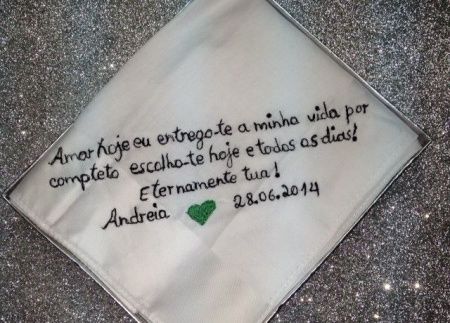 Amor hoje eu entrego-te a minha vida por
completo escolho-te hoje e todos os dias!
Eternamente tua!
Andreia 28.06.2014